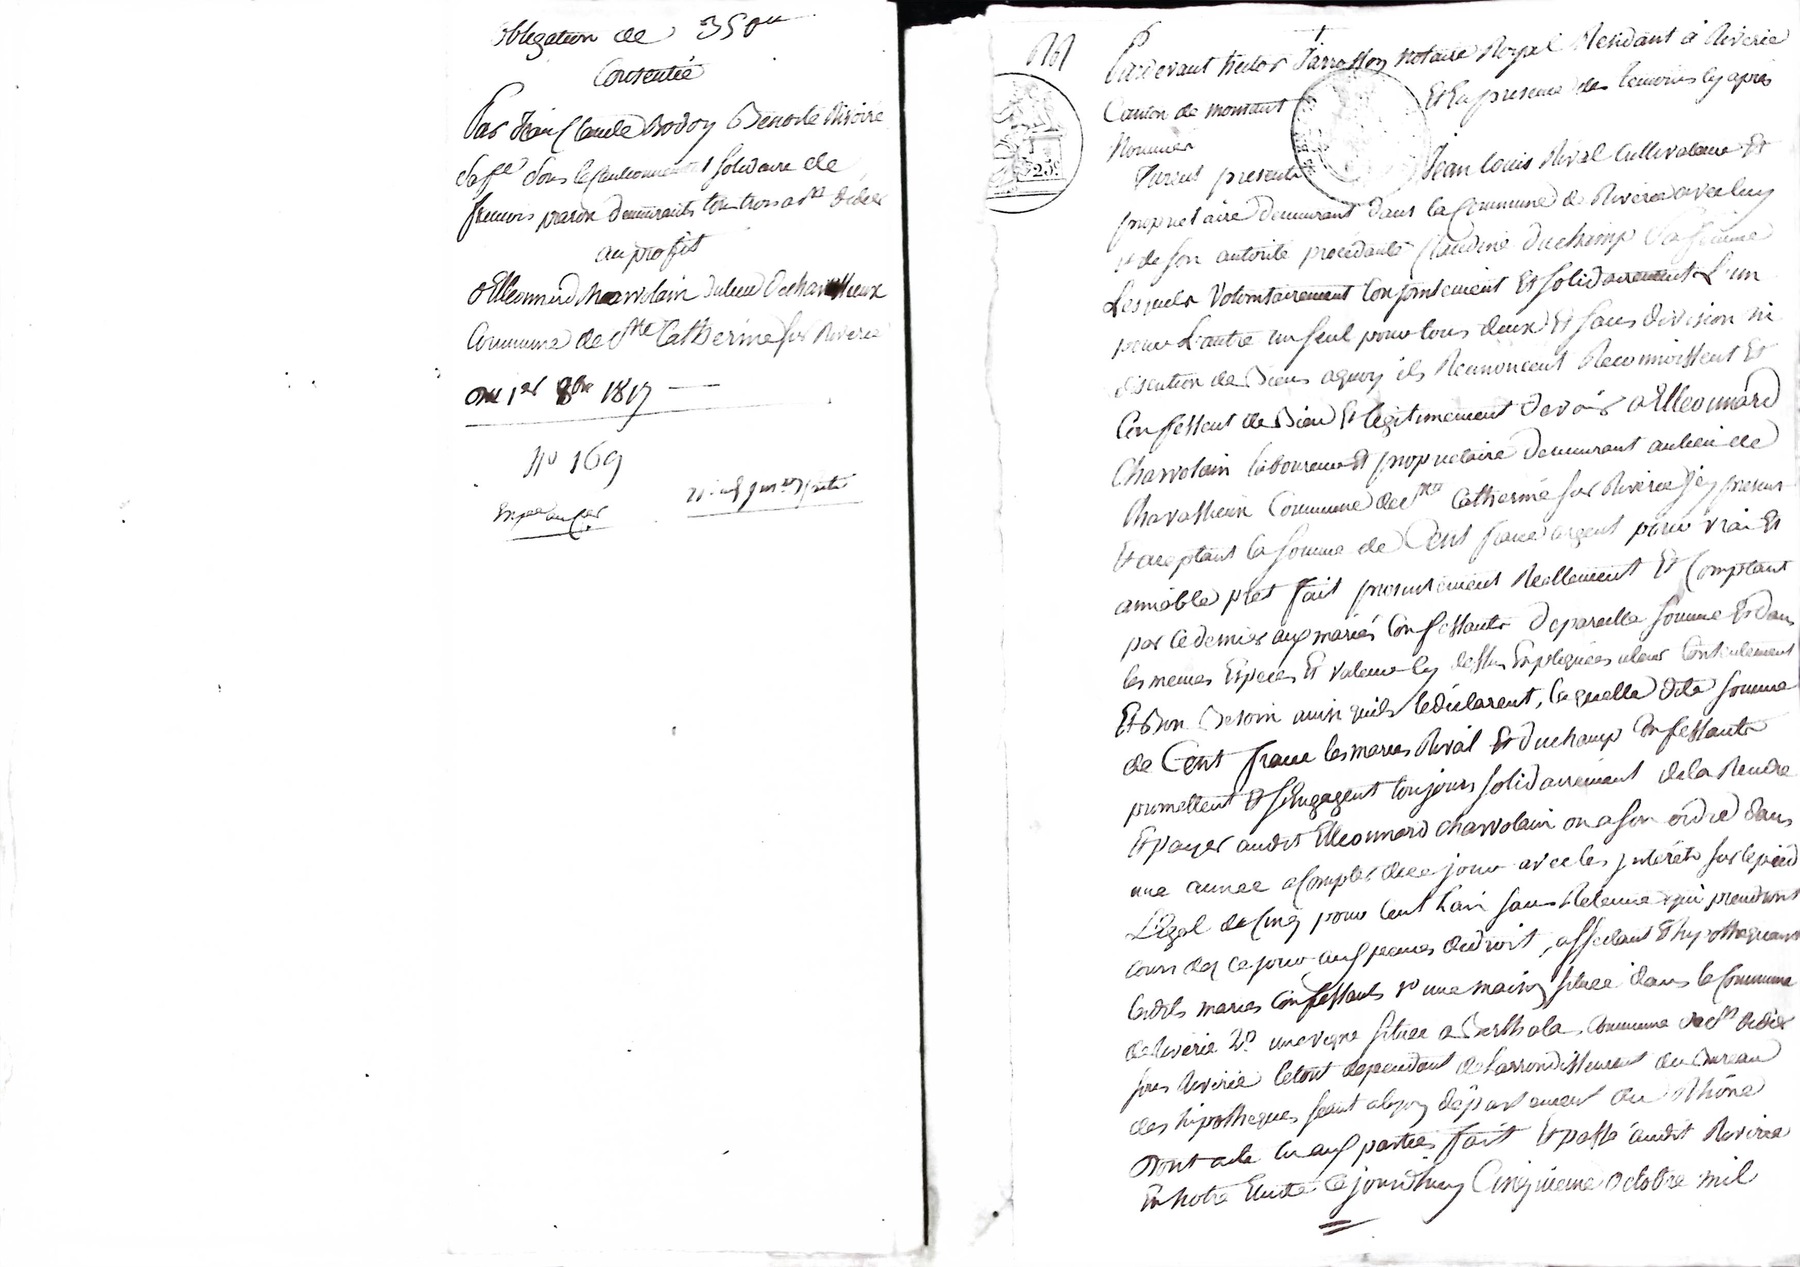 obligation de 350#
Consentie
Par Jean Claude Bodoy Benoite Rivoire
sa fe sous le Cautionnement solidaire de
francois demeurants tous trois a st didier
au profit
d'Elleonnard charvolain du lieu de chavassieux
Commune de Ste Catherine sur Riverie
Du 1er 8bre 1817
No 169
Expee au Cer
Pardevant Jarrosson notaire Royal Residant à Riverie
Canton de mornant Et En presence des temoins cy après
Nommés
Furent presents Jean Louis Rival Cultivateur Et
proprietaire demeurant dans la Commune de Riverie avec luy
et de son autorité procédante Claudine duchamp sa femme
Lesquels Volontairement Conjointement Et solidairement L'un
pour L'autre un seul pour tous deux Et sans division ni
discution de Biens aquoy ils Rennoncent Reconnoissent Et
Confessent de Bien Et legitimement Devoir a Elleonnard
Charvolain laboureur Et proprietaire demeurant au lieu de
Chavassieux Commune de Ste Catherine sur Riverie icy present
Et aceptant la somme de Cent francs argent pour vrai Et
amiable pret fait presentement Reellement Et Comptant
par ce dernier aux mariés Confessants de pareille somme Et dans
les memes Especes Et valeur cy dessus Expliquées a leur Contentement
Et Bon Besoin ainsi quils le déclarent, laquelle dite somme
de Cent francs les maries Rival Et duchamp Confessants
promettent Et s'Engagent toujours solidairement de la Rendre
Et payer audit Elleonnard charvolain ou a son ordre dans
une année a Compter de ce jour avec les jnterêts sur le pied
Légal de Cinq pour Cent L'an sans Retenue qui prendront
cours dez ce jour aux peines de droit, affectant Et hypothequant
lesdits maries Confessants 1o une maison située dans la Commune
de Riverie 2o une vigne située a Berthola Commune de St didier
sous Riverie le tout dependant de L'arrondissement du Bureau
des hipotheques séant a Lyon département du Rhône
Dont acte lu aux parties fait Et passé audit Riverie
En notre Etude Ce jourdhuy Cinquieme octobre mil